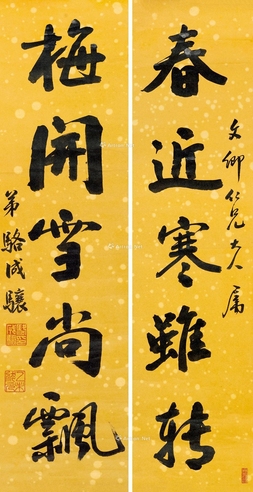 春近寒雖转
文卿仁兄大人属
梅開雪尚飄
弟駱成驤